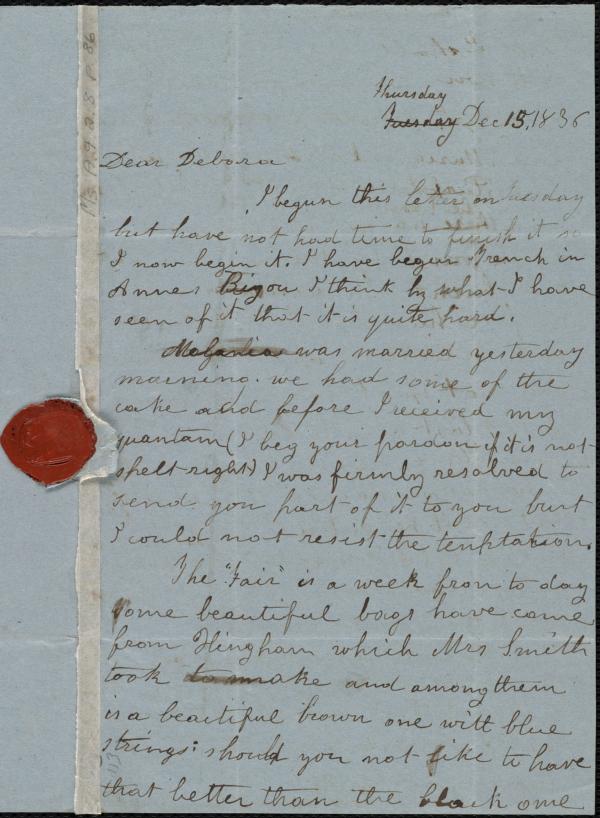 Thursday
Tuesday Dec 15, 1836
Dear Debora
I begun this letter on Tuesday
but have not had time to finish it so
I now begin it. I have begun French in
Annes Bigou I think by what I have
seen of it that it is quite hard.
was married yesterday
morning. we had some of the
cake and before I received my
quantam (I beg your pardon if it is not
spelt right) I was firmly resolved to
send you part of it to you but
I could not resist the temptation.
The "Fair" is a week from to day
some beautiful bags have come
from Hingham which Mrs Smith
took to make and among them
is a beautiful brown one with blue
strings: should you not like to have
that better than the black one